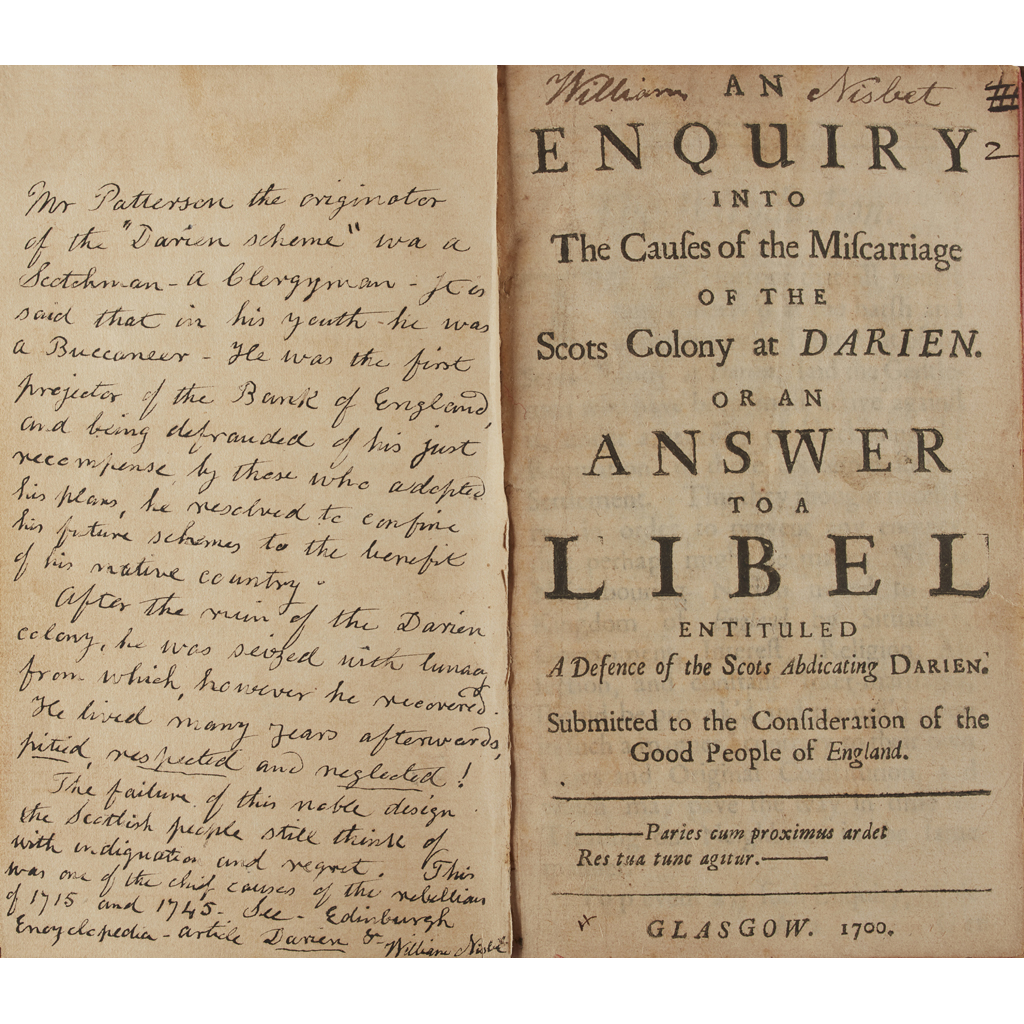 Mr Patterson the originator
of the "Darien scheme" wa a
Scotchman - a Clergyman - It is
said that in his youth he was
a Buccaneer - He was the first
projector of the Bank of England,
and being defrauded of his just
recompense by those who adopted
his plans, he resolved to confine
his future schemes to the benefit
of his native country -
After the ruin of the Darien
colony, he was seized with lunacy
from which, however he recovered.
He lived many years afterwards,
pitied, respected and neglected!
The failure of this noble design
the Scottish people still think of
with indignation and regret. This
was one of the chief causes of the rebellions
of 1715 and 1745. See - Edinburgh
Encyclopedia - article Darien &
William Nisbet
William AN Nisbet
ENQUIRY 2
INTO
The Cauſes of the Miſcarriage
OF THE
Scots Colony at DARIEN.
OR AN
ANSWER
TO A
LIBEL
ENTITULED
A Defence of the Scots Abdicating DARIEN.
Submitted to the Conſideration of the
Good People of England.
———Paries cum proximus ardet
Res tua tunc agitur.———
GLASGOW. 1700.